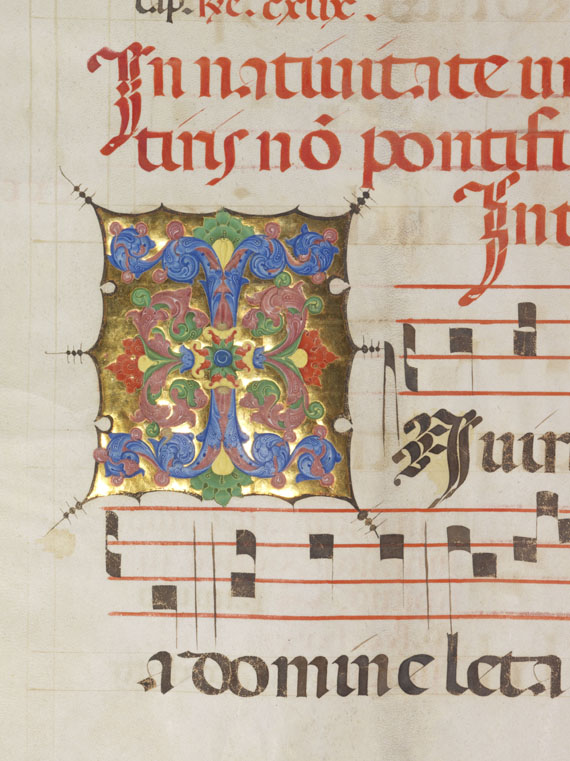 cap.
In natiuitate un
tiris nō pontifi
Int
I
N uirt
a domine leta